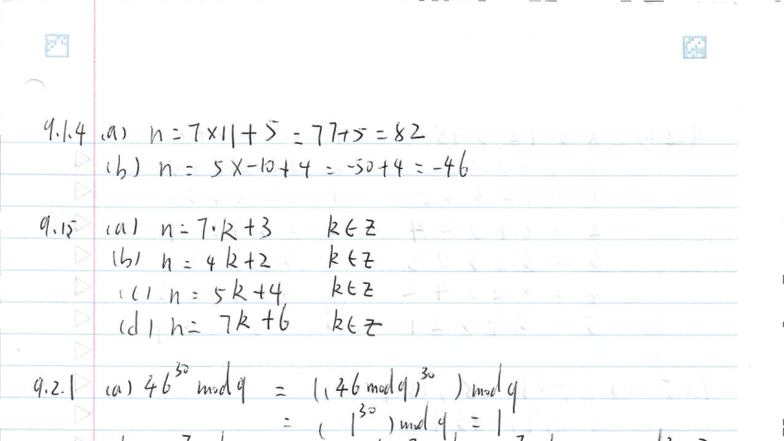 9.1.4 (a) n = 7×11+5 = 77+5 = 82
(b) n = 5×-10+4 = -50+4 = -46
9.15 (a) n = 7·k+3 k∈Z
(b) n = 4k+2 k∈Z
(c) n = 5k+4 k∈Z
(d) n = 7k+6 k∈Z
9.2.1 (a) 46³⁰ mod 9 = ((46 mod 9)³⁰) mod 9
= (1³⁰) mod 9 = 1